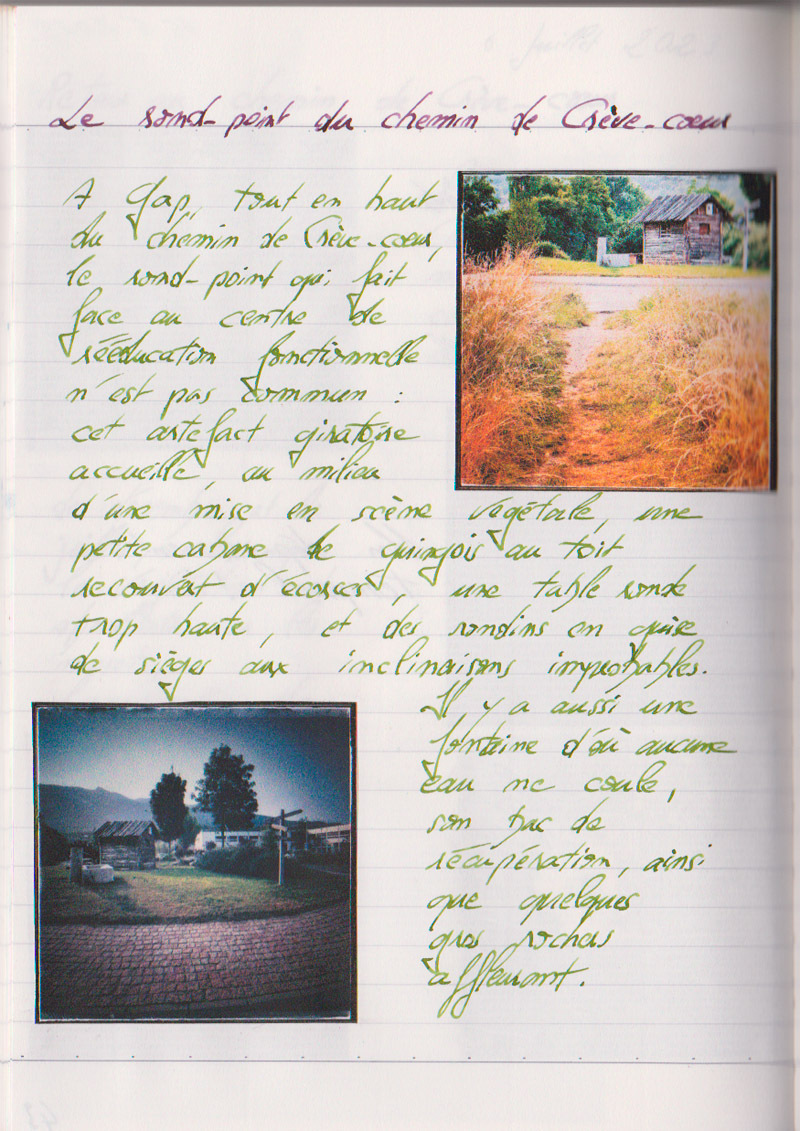 Le rond-point du chemin de Crève-cœur
A Gap, tout en haut
du chemin de Crève-cœur,
le rond-point qui fait
face au centre de
rééducation fonctionnelle
n'est pas commun :
cet artefact giratoire
accueille, au milieu
d'une mise en scène végétale, une
petite cabane de guingois au toit
recouvert d'écorces, une table ronde
trop haute, et des rondins en guise
de sièges aux inclinaisons improbables.
Il y a aussi une
fontaine d'où aucune
eau ne coule,
son bac de
récupération, ainsi
que quelques
gros rochers
affleurant.